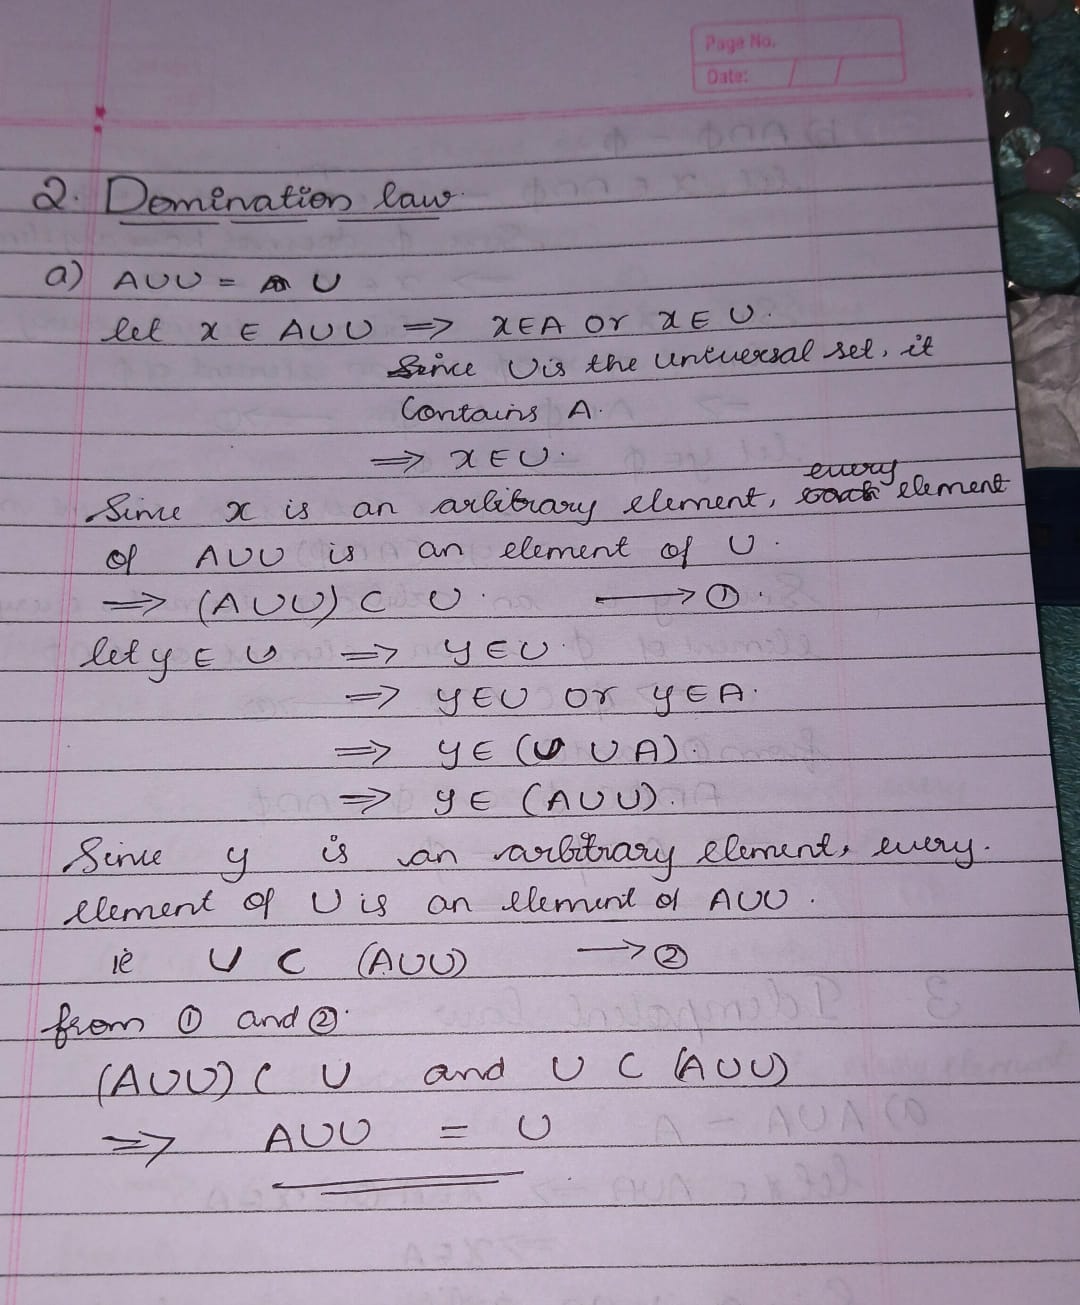 Page No.
Date: / /
2. Domination law.
a) A∪U = U
let x ∈ A∪U ⇒ x∈A or x∈U.
Since U is the universal set, it
Contains A.
⇒ x∈U.
every
Since x is an arbitrary element, element
of A∪U is an element of U.
⇒ (A∪U) ⊂ U. → ①.
let y ∈ U ⇒ y∈U.
⇒ y∈U or y∈A.
⇒ y∈ (U ∪ A).
⇒ y∈ (A∪U).
Since y is an arbitrary element, every.
element of U is an element of A∪U.
ie U ⊂ (A∪U) → ②
from ① and ②.
(A∪U) ⊂ U and U ⊂ (A∪U)
⇒ A∪U = U